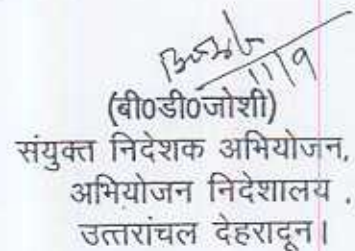 11/9
(बी0डी0जोशी)
संयुक्त निदेशक अभियोजन,
अभियोजन निदेशालय ,
उत्तरांचल देहरादून।